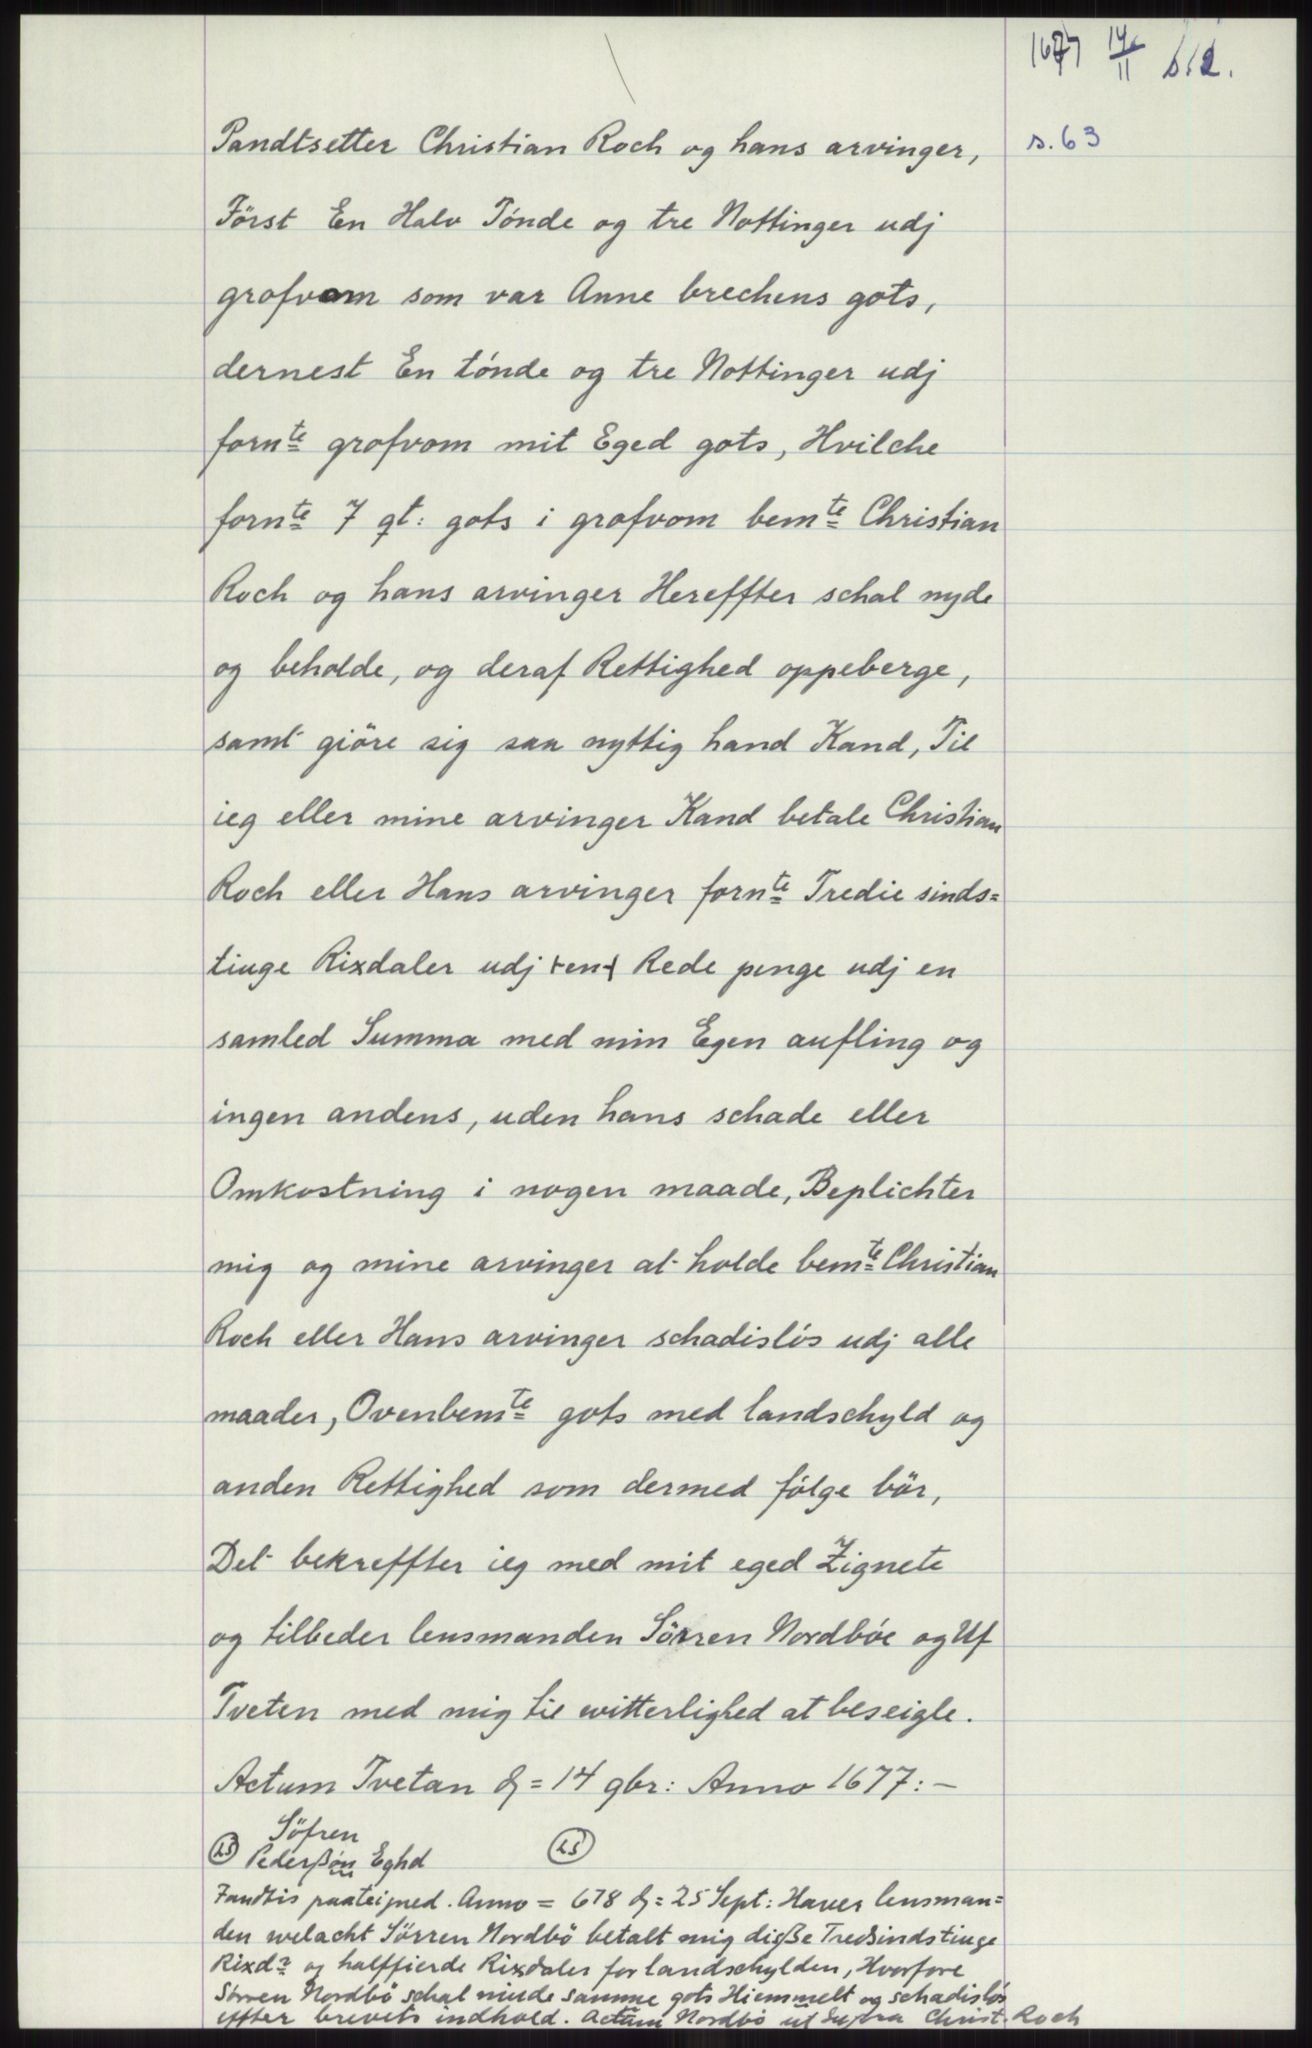 1677 14/11 s. 2.
Pandtsetter Christian Roch og hans arvinger,
s. 63
Först En Halv Tónde og tre Nottinger udj
grofvom som var Anne brechens gots,
dernest En tónde og tre Nottinger udj
fornte grofvom mit Eged gots, Hvilche
fornte 7 qt: gots i grofvom bemte Christian
Roch og hans arvinger Hereffter schal nyde
og beholde, og deraf Rettighed oppeberge,
samt giöre sig saa nyttig hand Kand, Til
ieg eller mine arvinger Kand betale Christian
Roch eller Hans arvinger fornte Tredie sinds=
tiuge Rixdaler udj +en+ Rede penge udj en
samled Summa med min Egen aufling og
ingen andens, uden hans schade eller
Omkostning i nogen maade, Beplichter
mig og mine arvinger at holde bemte Christian
Roch eller Hans arvinger schadislós udj alle
maader, Ovenbemte gots med landschyld og
anden Rettighed som dermed fólge bör,
Det bekreffter ieg med mit eged Zignete
og tilbeder lensmanden Sörren Nordbóe og Uf
Tveten med mig til witterlighed at beseigle.
Actum Tvetan d= 14 9br: Anno 1677: —
Söfren
LS Pederßön Eghd LS
Zandtis paateigned. Anno = 678 d= 25 Sept: Haver lensman=
den welacht Sörren Nordbö betalt mig diße Treßindstiuge
Rixdr og halffierde Rixdaler for landschylden, Hvorfore
Sörren Nordbö schal niude samme gots Hiemmelt og schadislós
effter brevets indhold. Actum Nordbö ut Supra Christ. Roch